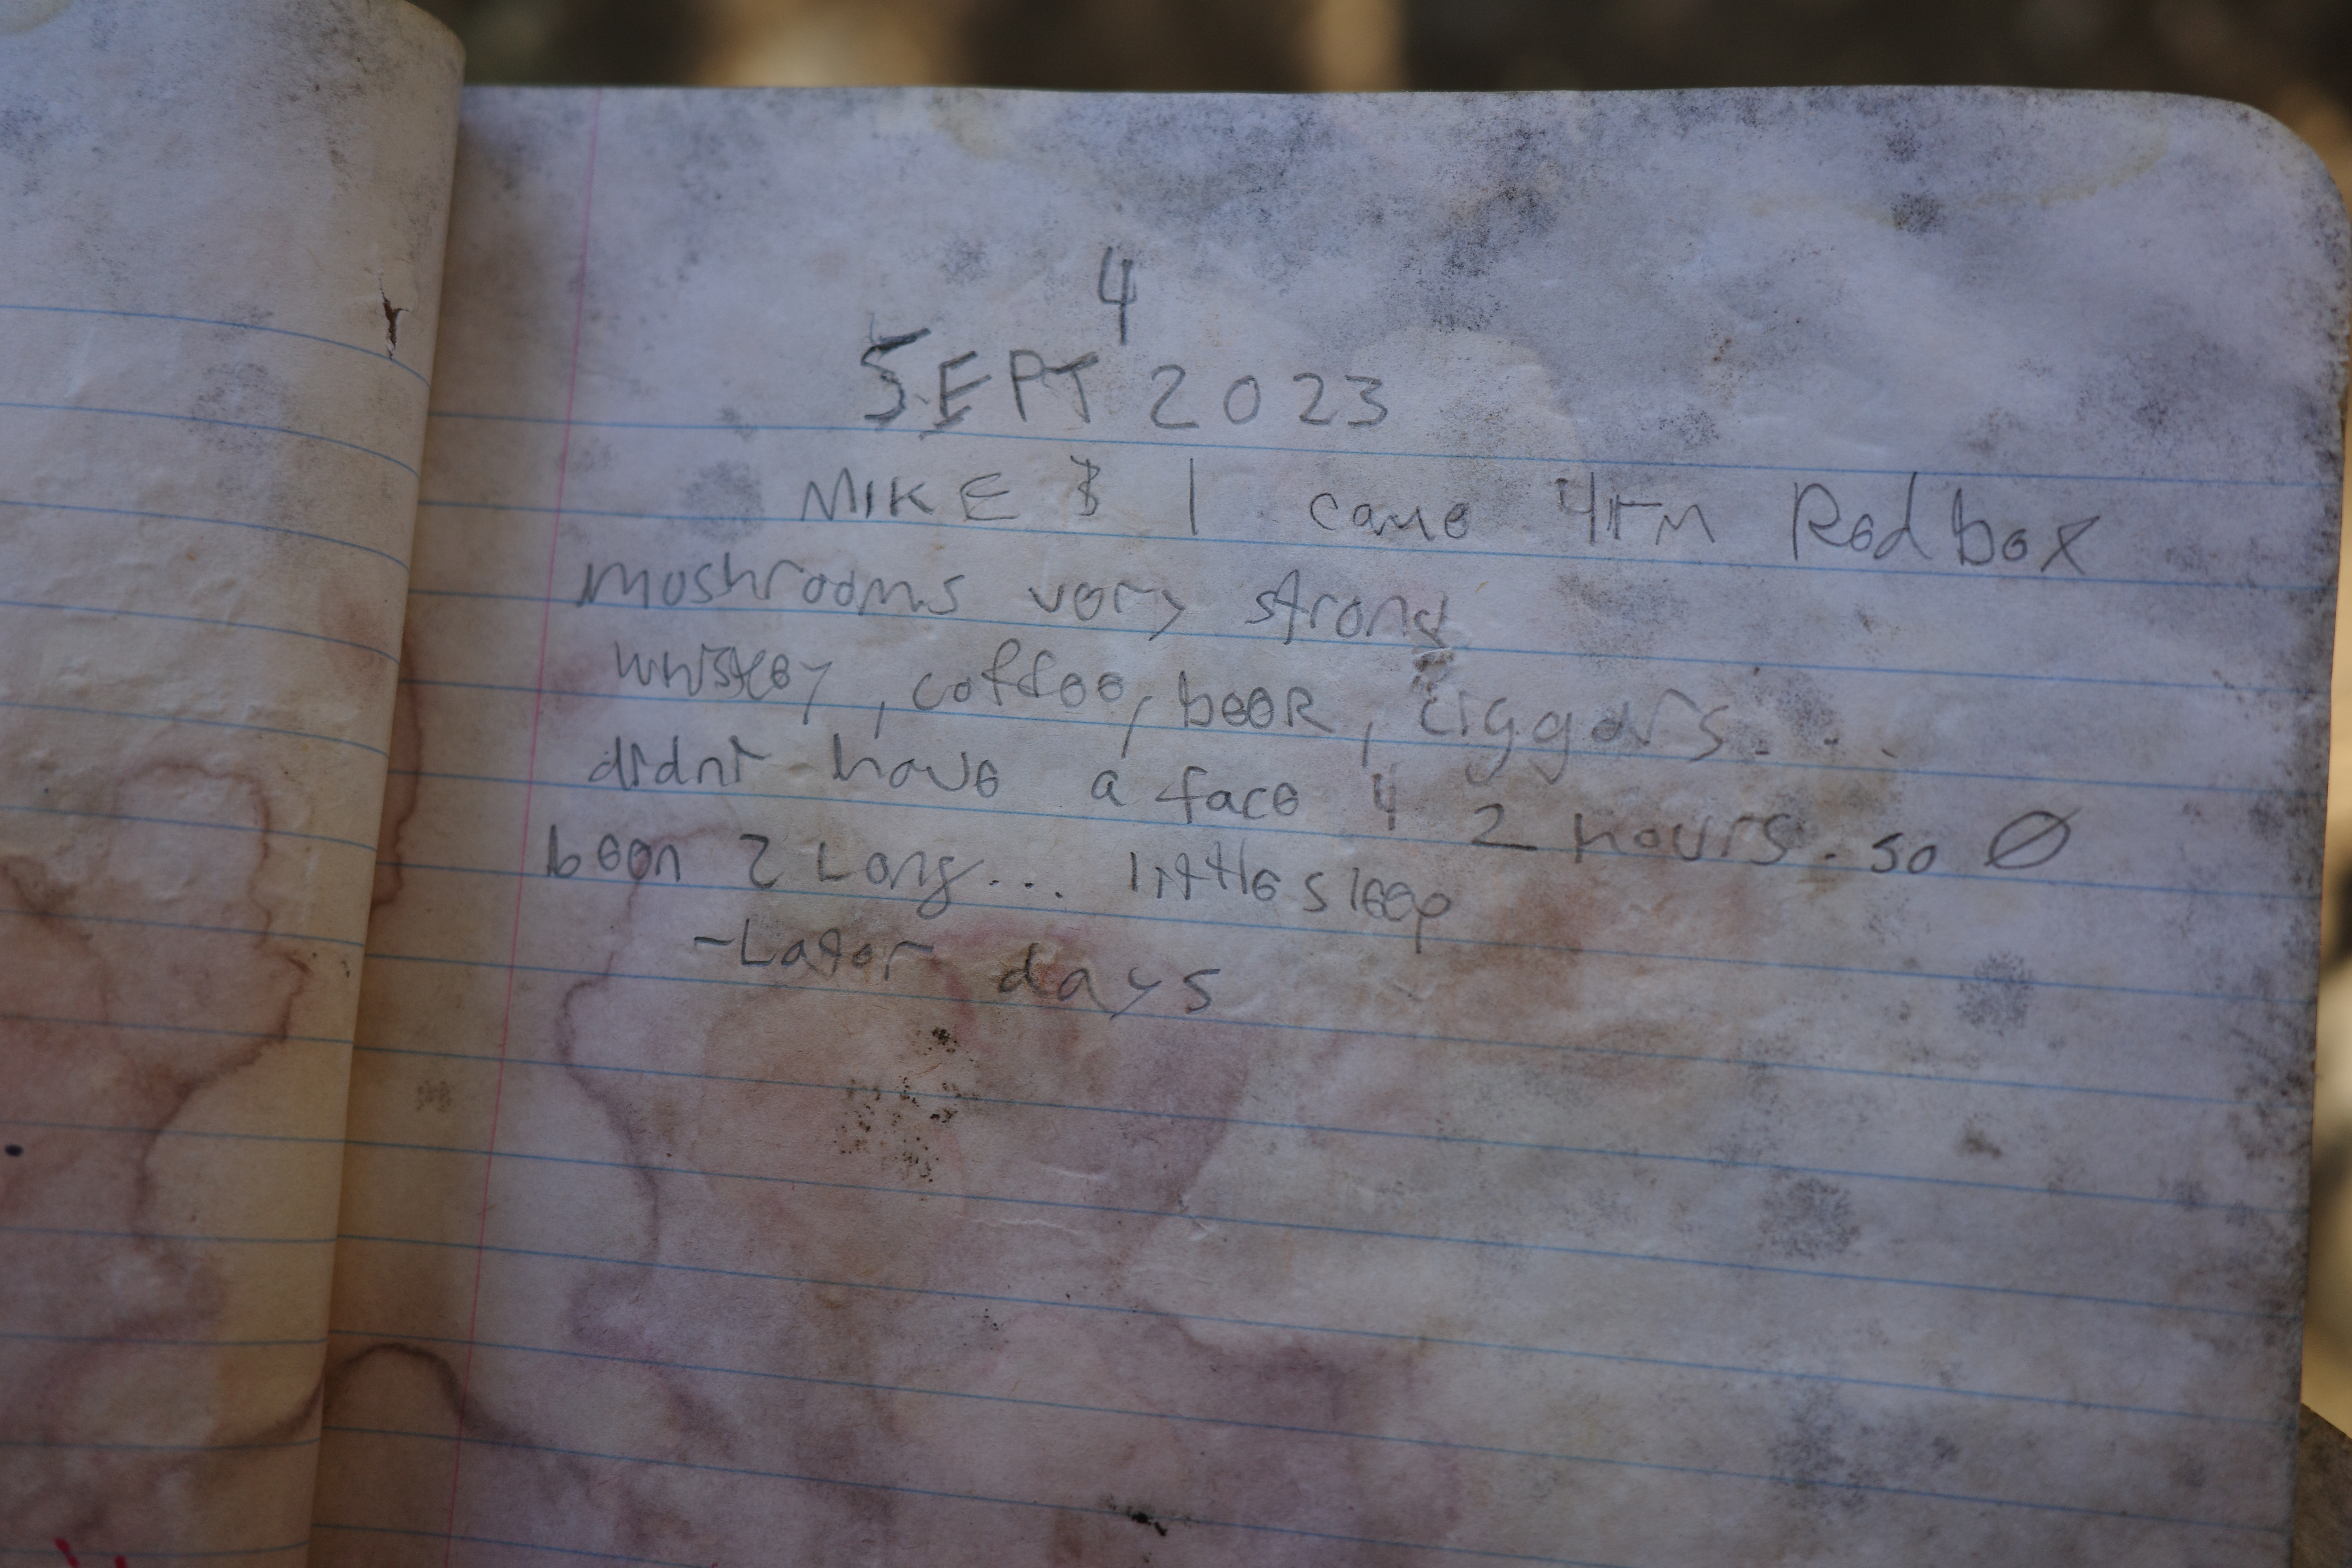 4
SEPT 2023
MIKE & I came 4rm Red box
mushrooms very strong
whiskey, coffee, beer, ciggars...
didnt have a face 4 2 hours. so Ø
been 2 Long... little sleep
-Later days